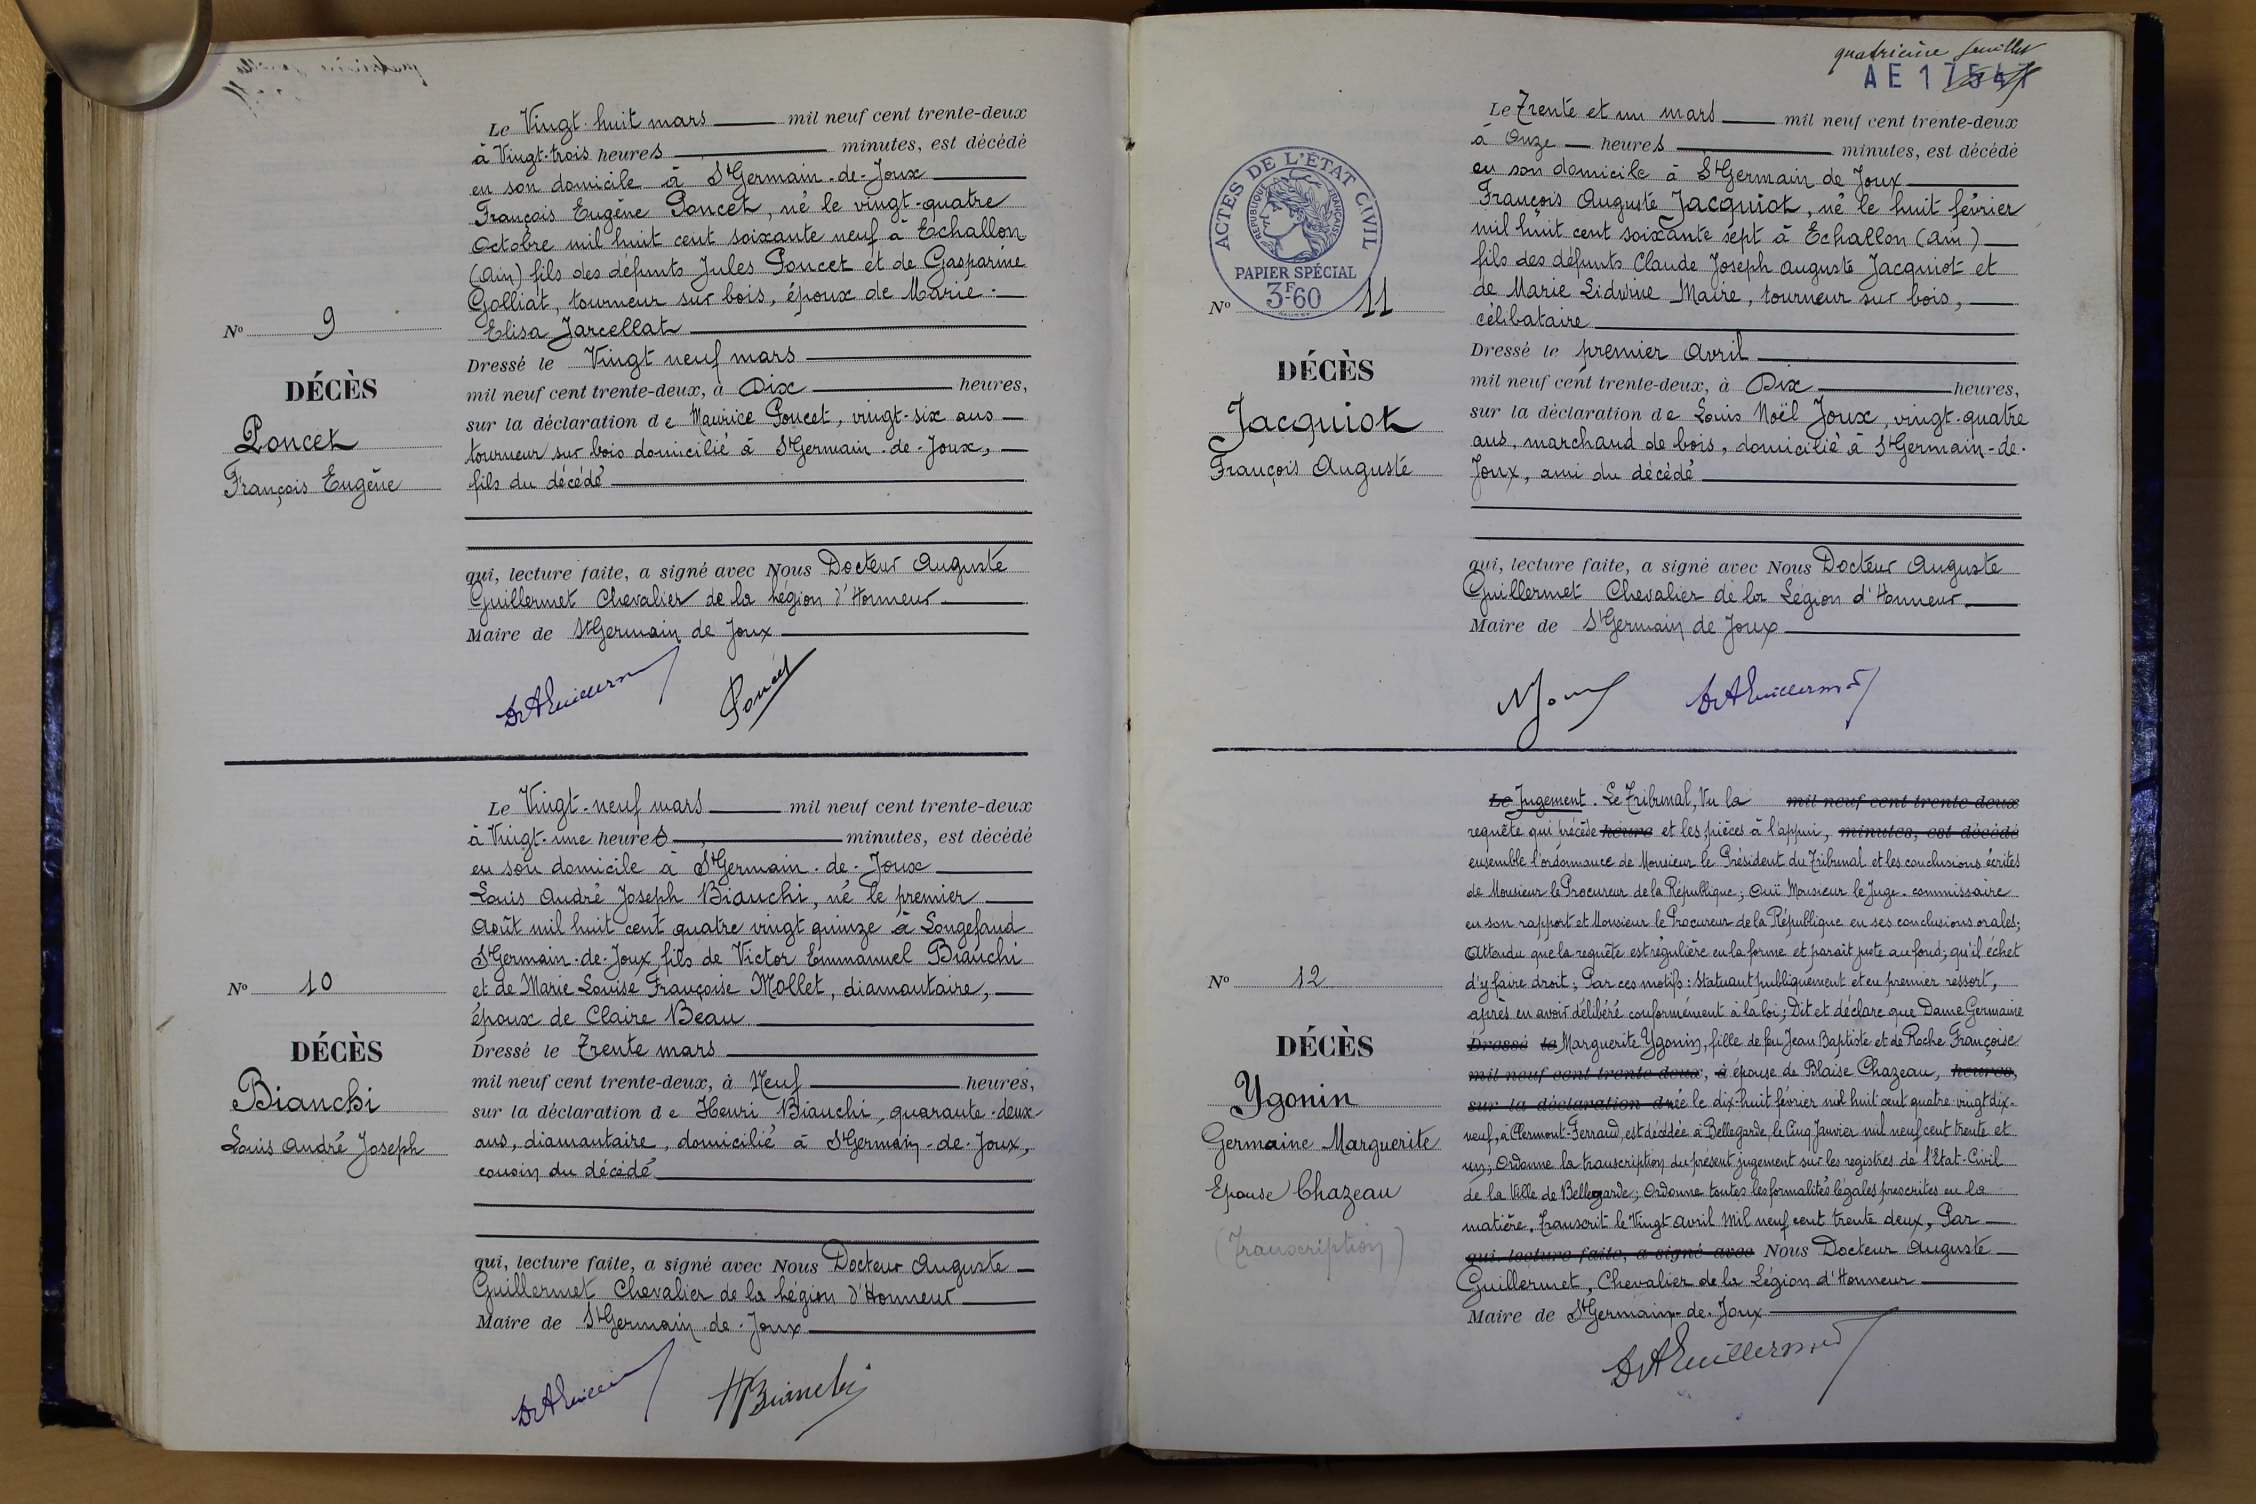 Le Vingt-huit mars mil neuf cent trente-deux
à Vingt-trois heures minutes, est décédé
en son domicile à St Germain-de-Joux
François Eugène Poncet, né le vingt-quatre
Octobre mil huit cent soixante neuf à Echallon
(Ain) fils des défunts Jules Poncet et de Gasparine
Golliat, tourneur sur bois, époux de Marie-
Elisa Jarcellat
Nº 9
Dressé le Vingt neuf mars
mil neuf cent trente-deux, à Dix heures,
DÉCÈS
sur la déclaration de Maurice Poncet, vingt-six ans
Poncet
tourneur sur bois domicilié à St Germain-de-Joux,
François Eugène
fils du décédé
qui, lecture faite, a signé avec Nous Docteur Auguste
Guillermet Chevalier de la Légion d'Honneur
Maire de St Germain de Joux
Dr A Guillermet Poncet
Le Vingt-neuf mars mil neuf cent trente-deux
à Vingt-une heures minutes, est décédé
en son domicile à St Germain-de-Joux
Louis André Joseph Bianchi, né le premier
Août mil huit cent quatre vingt quinze à Longefand
St Germain-de-Joux, fils de Victor Emmanuel Bianchi
Nº 10
et de Marie Louise Françoise Mollet, diamantaire,
époux de Claire Beau
DÉCÈS
Dressé le Trente mars
mil neuf cent trente-deux, à Neuf heures,
Bianchi
sur la déclaration de Henri Bianchi, quarante-deux
Louis André Joseph
ans, diamantaire, domicilié à St Germain-de-Joux,
cousin du décédé
qui, lecture faite, a signé avec Nous Docteur Auguste
Guillermet Chevalier de la Légion d'Honneur
Maire de St Germain-de-Joux
Dr A Guillermet H Bianchi
quatrième feuillet
AE 17547
ACTES DE L'ÉTAT CIVIL
RÉPUBLIQUE FRANÇAISE
PAPIER SPÉCIAL
3F60
Le Trente et un mars mil neuf cent trente-deux
à Onze heures minutes, est décédé
en son domicile à St Germain de Joux
François Auguste Jacquiot, né le huit février
mil huit cent soixante sept à Echallon (Ain)
fils des défunts Claude Joseph Auguste Jacquiot et
de Marie Sidvine Maire, tourneur sur bois,
Nº 11
célibataire
Dressé le premier Avril
DÉCÈS
mil neuf cent trente-deux, à Dix heures,
Jacquiot
sur la déclaration de Louis Noël Joux, vingt-quatre
ans, marchand de bois, domicilié à St Germain-de-
François Auguste
Joux, ami du décédé
qui, lecture faite, a signé avec Nous Docteur Auguste
Guillermet Chevalier de la Légion d'Honneur
Maire de St Germain de Joux
N Joux Dr A Guillermet
Le Jugement. Le Tribunal, Vu la mil neuf cent trente-deux
requête qui précède heure et les pièces à l'appui, minutes, est décédé
ensemble l'ordonnance de Monsieur le Président du Tribunal et les conclusions écrites
de Monsieur le Procureur de la République; Ouï Monsieur le Juge-commissaire
en son rapport et Monsieur le Procureur de la République en ses conclusions orales;
Attendu que la requête est régulière en la forme et parait juste au fond; qu'il échet
Nº 12
d'y faire droit; Par ces motifs: Statuant publiquement et en premier ressort,
après en avoir délibéré conformément à la loi; Dit et déclare que Dame Germaine
DÉCÈS
Dressé le Marguerite Ygonin, fille de feu Jean Baptiste et de Roche Françoise
mil neuf cent trente-deux, à épouse de Blaise Chazeau, heures,
Ygonin
sur la déclaration d née le dix-huit février mil huit cent quatre-vingt dix-
Germaine Marguerite
neuf, à Clermont-Ferrand, est décédée à Bellegarde, le Cinq Janvier mil neuf cent trente et
un; Ordonne la transcription du présent jugement sur les registres de l'Etat-Civil
Epouse Chazeau
de la Ville de Bellegarde; Ordonne toutes les formalités légales prescrites en la
matière. Transcrit le Vingt Avril Mil neuf cent trente deux, Par
(Transcription)
qui, lecture faite, a signé avec Nous Docteur Auguste
Guillermet, Chevalier de la Légion d'Honneur
Maire de St Germain-de-Joux
Dr A Guillermet